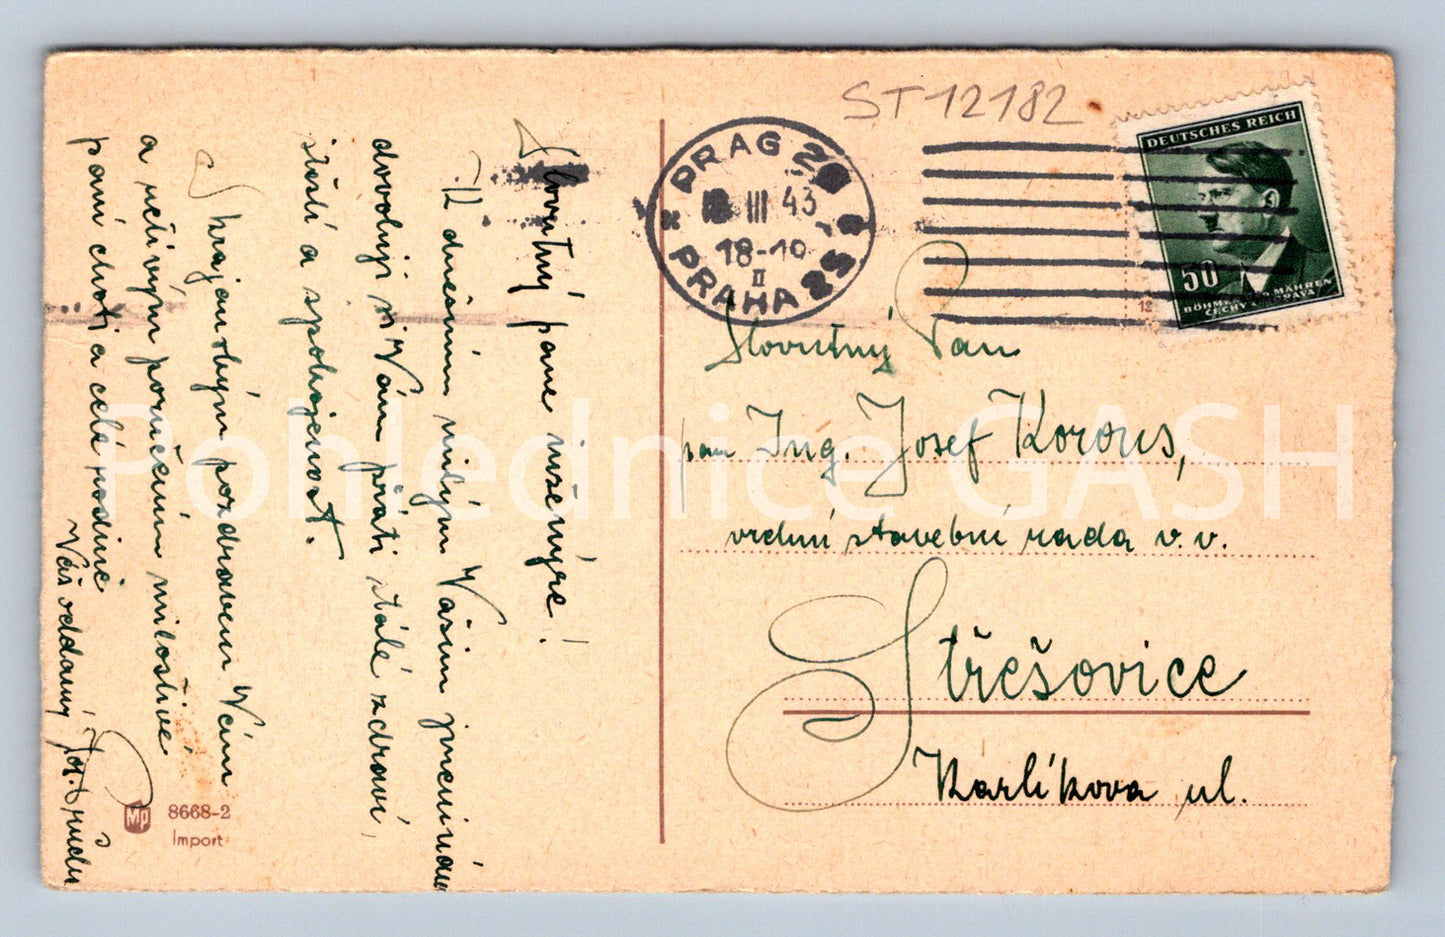 ST12182
PRAG 25
III 43
18-19
II
PRAHA 25
DEUTSCHES REICH
50
BÖHMEN MÄHREN
ČECHY MORAVA
12
Slovutný Pan
pan Ing. Josef Korous,
vrchní stavební rada v. v.
Střešovice
Karlíkova ul.
Slovutný pane inženýre!
K dnešním milým Vašim jmeninám
dovoluji si Vám přáti stálé zdraví,
štěstí a spokojenost.
S krajanským pozdravem Vám
a uctivým poručením milostivé
paní choti a celé rodině
Váš oddaný Jos.
MP 8668-2
Import
Pohlednice GASH